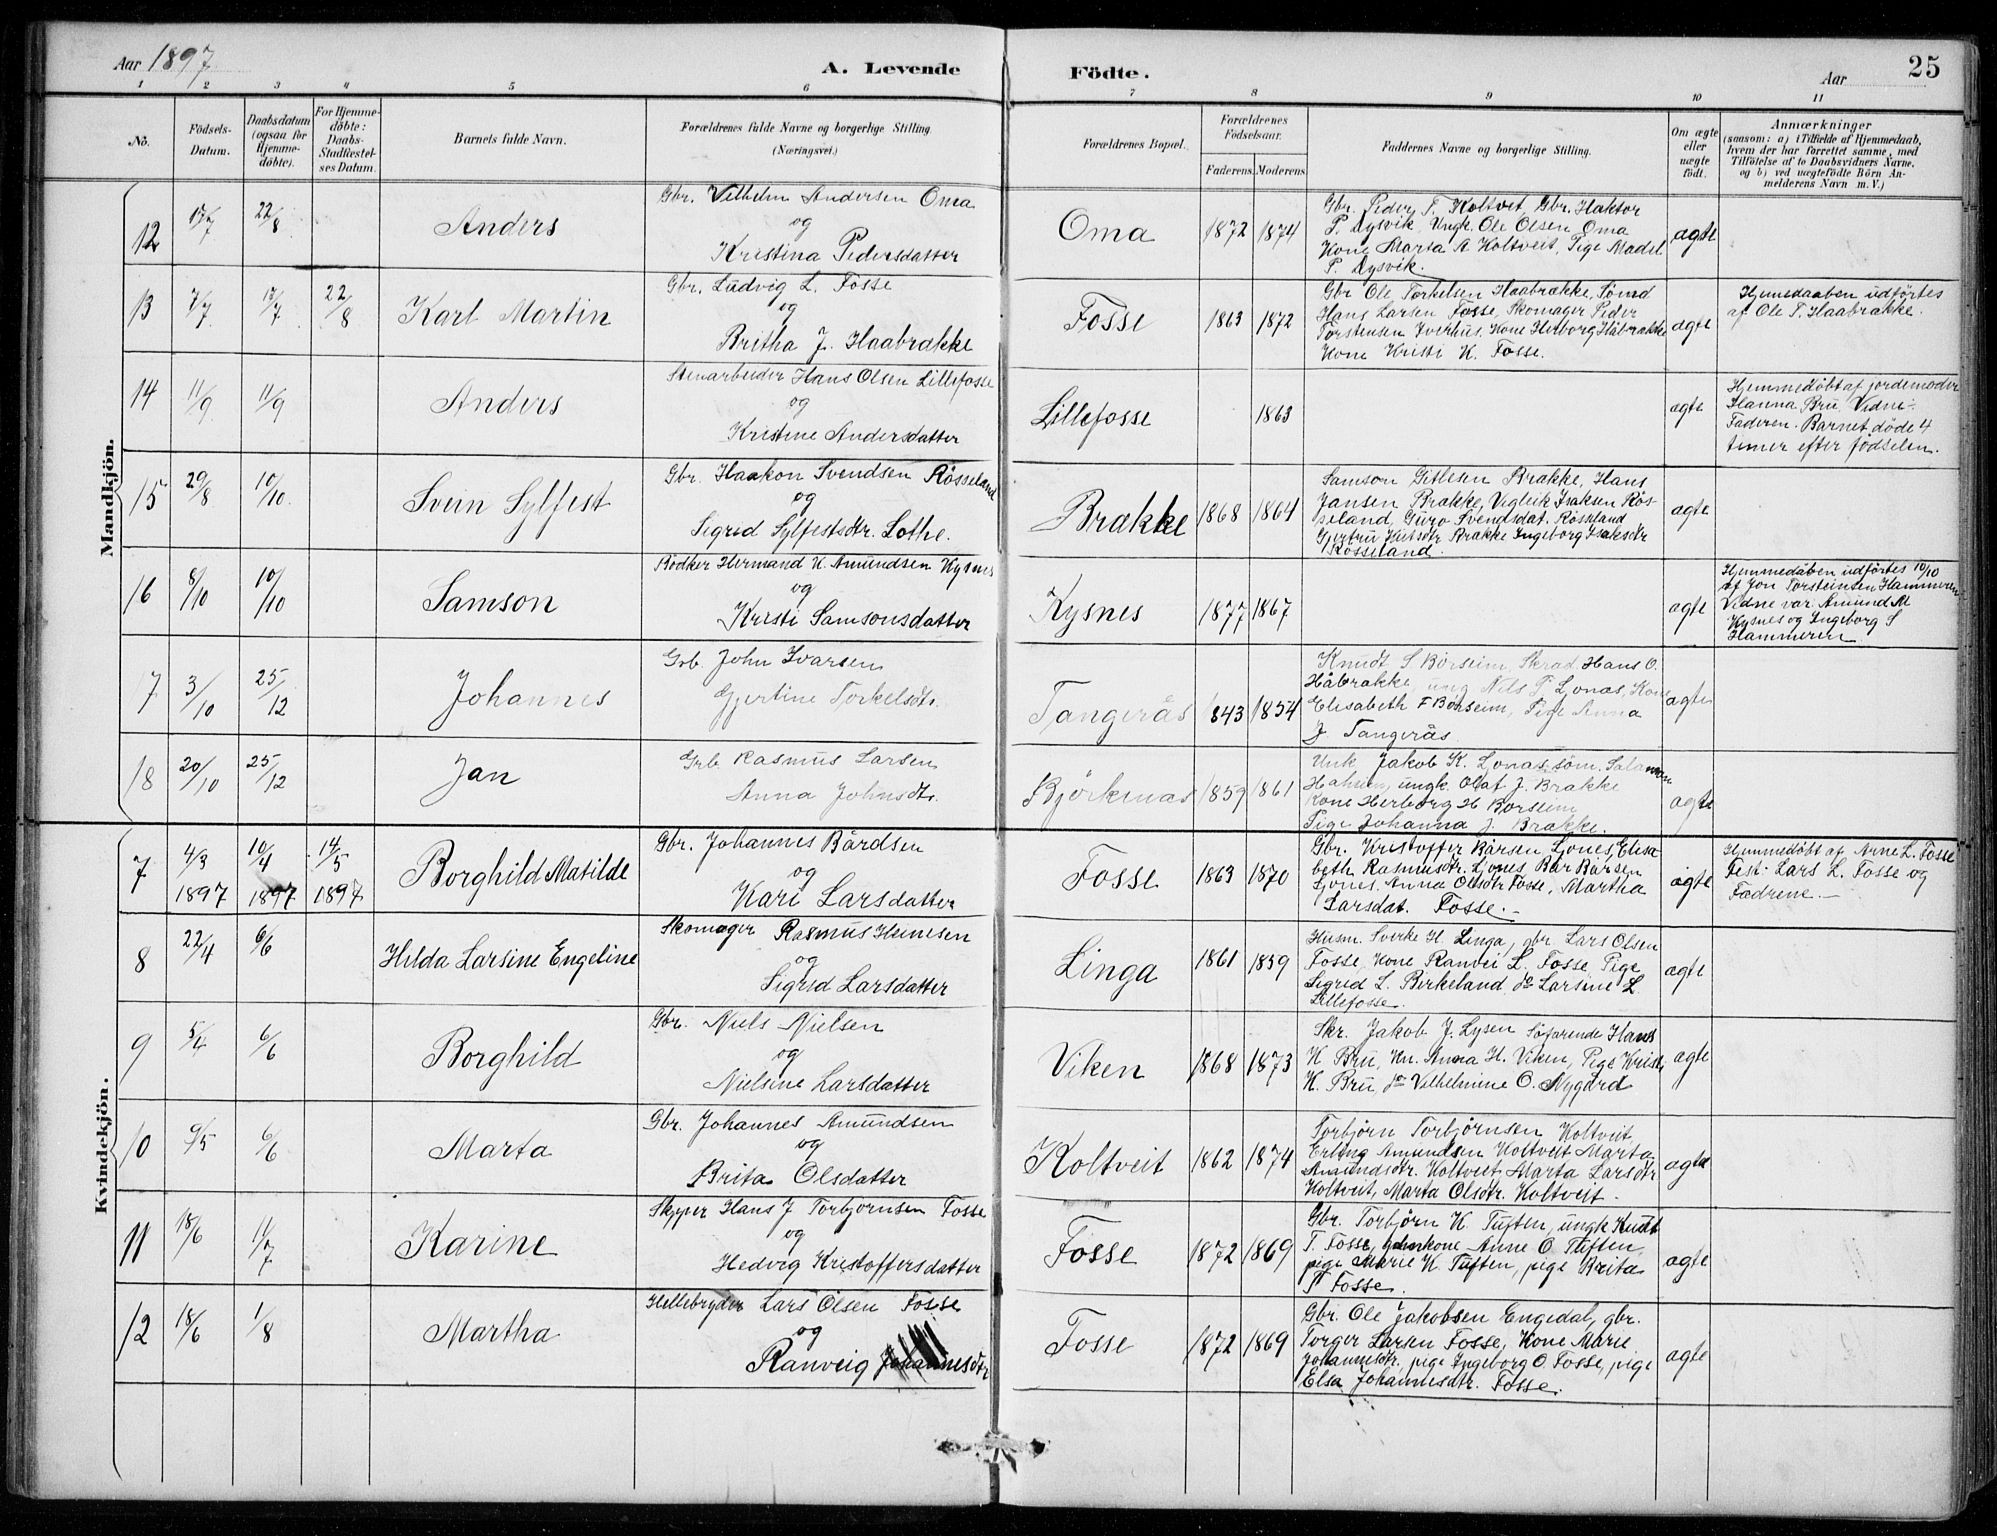 Aar 1897
A. Levende
Födte.
Aar
25
1 2 3 4 5 6 7 8 9 10 11
No.
Födsels-
Datum.
Daabsdatum
(ogsaa for
Hjemme-
döbte).
For Hjemme-
döbte:
Daabs-
Stadfæstel-
ses Datum.
Barnets fulde Navn.
Forældrenes fulde Navne og borgerlige Stilling.
(Næringsvei.)
Forældrenes Bopæl.
Forældrenes
Födselsaar.
Faderens.
Moderens.
Faddernes Navne og borgerlige Stilling.
Om ægte
eller
uægte
födt.
Anmærkninger
(saasom: a) i Tilfælde af Hjemmedaab,
hvem der har forrettet samme, med
Tilföielse af to Daabsvidners Navne,
og b) ved uægtefödte Börn An-
melderens Navn m. V.)
Mandkjön.
12 17/7 22/8 Anders
Gbr. Vilhelm Andersen Oma
og
Kristina Pedersdatter
Oma 1872 1874
Gbr. Peder T. Koltveit Gbr. Haktor
P. Dysvik, Ungk. Ole Olsen Oma
Kone Marta A Koltveit, Pige Madel
P. Dysvik.
ægte
13 7/7 17/7 22/8 Karl Martin
Gbr. Ludvig L. Fosse
og
Britha J. Haabrække
Fosse 1863 1872
Gbr Ole Torkelsen Haabrække, Sömd
Hans Larsen Fosse, Skomager Peder
Torstensen Iverhus, Kone Herborg Håbrække
Kone Kristi K. Fosse.
ægte
Hjemedaaben udförtes
af Ole T. Haabrække.
14 11/9 11/9 Anders
Stenarbeider Hans Olsen Lillefosse
og
Kristine Andersdatter
Lillefosse 1863
ægte
Hjemmedöbt af jordemoder
Hanna Bru. Vidne:
Faderen. Barnet döde 4
timer efter födselen.
15 29/8 10/10 Svein Sylfest
Gbr. Haakon Svendsen Rösseland
og
Sigrid Sylfestsdtr. Lothe.
Brække 1868 1864
Samson Gitlesen Brække, Hans
Jansen Brække, Vigleik Isaksen Rös-
seland, Guro Svendsdat. Rösseland
Gjertru Brække Ingeborg Isaksdtr
Rösseland.
ægte
16 8/10 10/10 Samson
Bödker Hermand K. Amundsen Kysnes
og
Kristi Samsonsdatter
Kysnes 1877 1867
ægte
Hjemmedåben udförtes 10/10
af Jon Torsteinsen Hammeren
Vidne var Amund M
Kysnes og Ingeborg S
Hammeren
7 3/10 25/12 Johannes
Grb. John Ivarsen
Gjertine Torkelsdtr.
Tangerås 1843 1854
Knudt S Börseim, Skrad. Hans O.
Håbrække ung Nils P. Ljonas, Kone
Elisabeth F Börseim, Pige Anna
J Tangerås
ægte
18 20/10 25/12 Jan
Grb Rasmus Larsen
Anna Johnsdtr.
Björkenæs 1859 1861
Unk Jakob K. Ljonas söm. Salamon
ungk. Olaf J. Brække
Kone Herborg H Börseim
Pige Johanna J. Brække.
ægte
Kvindekjön.
7 4/3 1897 10/4 1897 14/5 1897 Borghild Matilde
Gbr. Johannes Bårdsen
og
Kari Larsdatter
Fosse 1863 1870
Gbr. Kristoffer Bårsen Ljones, Elisa
beth Rasmusdtr. Ljones, Bår Bårsen
Ljones, Anna Olsdtr Fosse, Martha
Larsdat. Fosse.-
ægte
Hjemmedöbt af Arne L. Fosse
Test: Lars L. Fosse og
Fædrene.-
8 22/4 6/6 Hilda Larsine Engeline
Skomager Rasmus Heinesen
og
Sigrid Larsdatter
Linga 1861 1859
Husm. Sverke H. Linga, gbr. Lars Olsen
Fosse, Kone Ranvei L. Fosse, Pige
Sigrid L. Birkeland, do Larsine L.
Lillefosse.
ægte
9 5/4 6/6 Borghild
Gbr. Niels Nielsen
og
Nielsine Larsdatter
Viken 1868 1873
Skr. Jakob J. Lysen Söfarende Hans
K. Bru, Kn. Anna H. Viken, Pige Kristi
K. Bru, do Vilhelmine O. Nygård
ægte
10 9/5 6/6 Marta
Gbr. Johannes Amundsen
og
Brita Olsdatter
Koltveit 1862 1874
Torbjörn Torbjörnsen Koltveit,
Erling Amundsen Koltveit Marta
Amundsdtr. Koltveit, Marta Larsdtr
Koltveit, Marta Olsdtr. Koltveit.
ægte
11 18/6 11/7 Karine
Skyper Hans J Torbjörnsen Fosse
og
Hedvig Kristoffersdatter
Fosse 1872 1869
Gbr. Torbjörn K. Tuften, ungk Knut
T. Fosse, Anne O. Tuften,
pige Marie K. Tuften, pige Brita
T Fosse.
ægte
12 18/6 1/8 Martha
Hellebryder Lars Olsen Fosse
og
Ranveig Johannesdtr
Fosse 1872 1869
Gbr. Ole Jakobsen Engedal, gbr.
Torger Larsen Fosse, Kone Marie
Johannesdtr, pige Ingeborg O. Fosse, pige
Elsa Johannesdtr. Fosse.
ægte